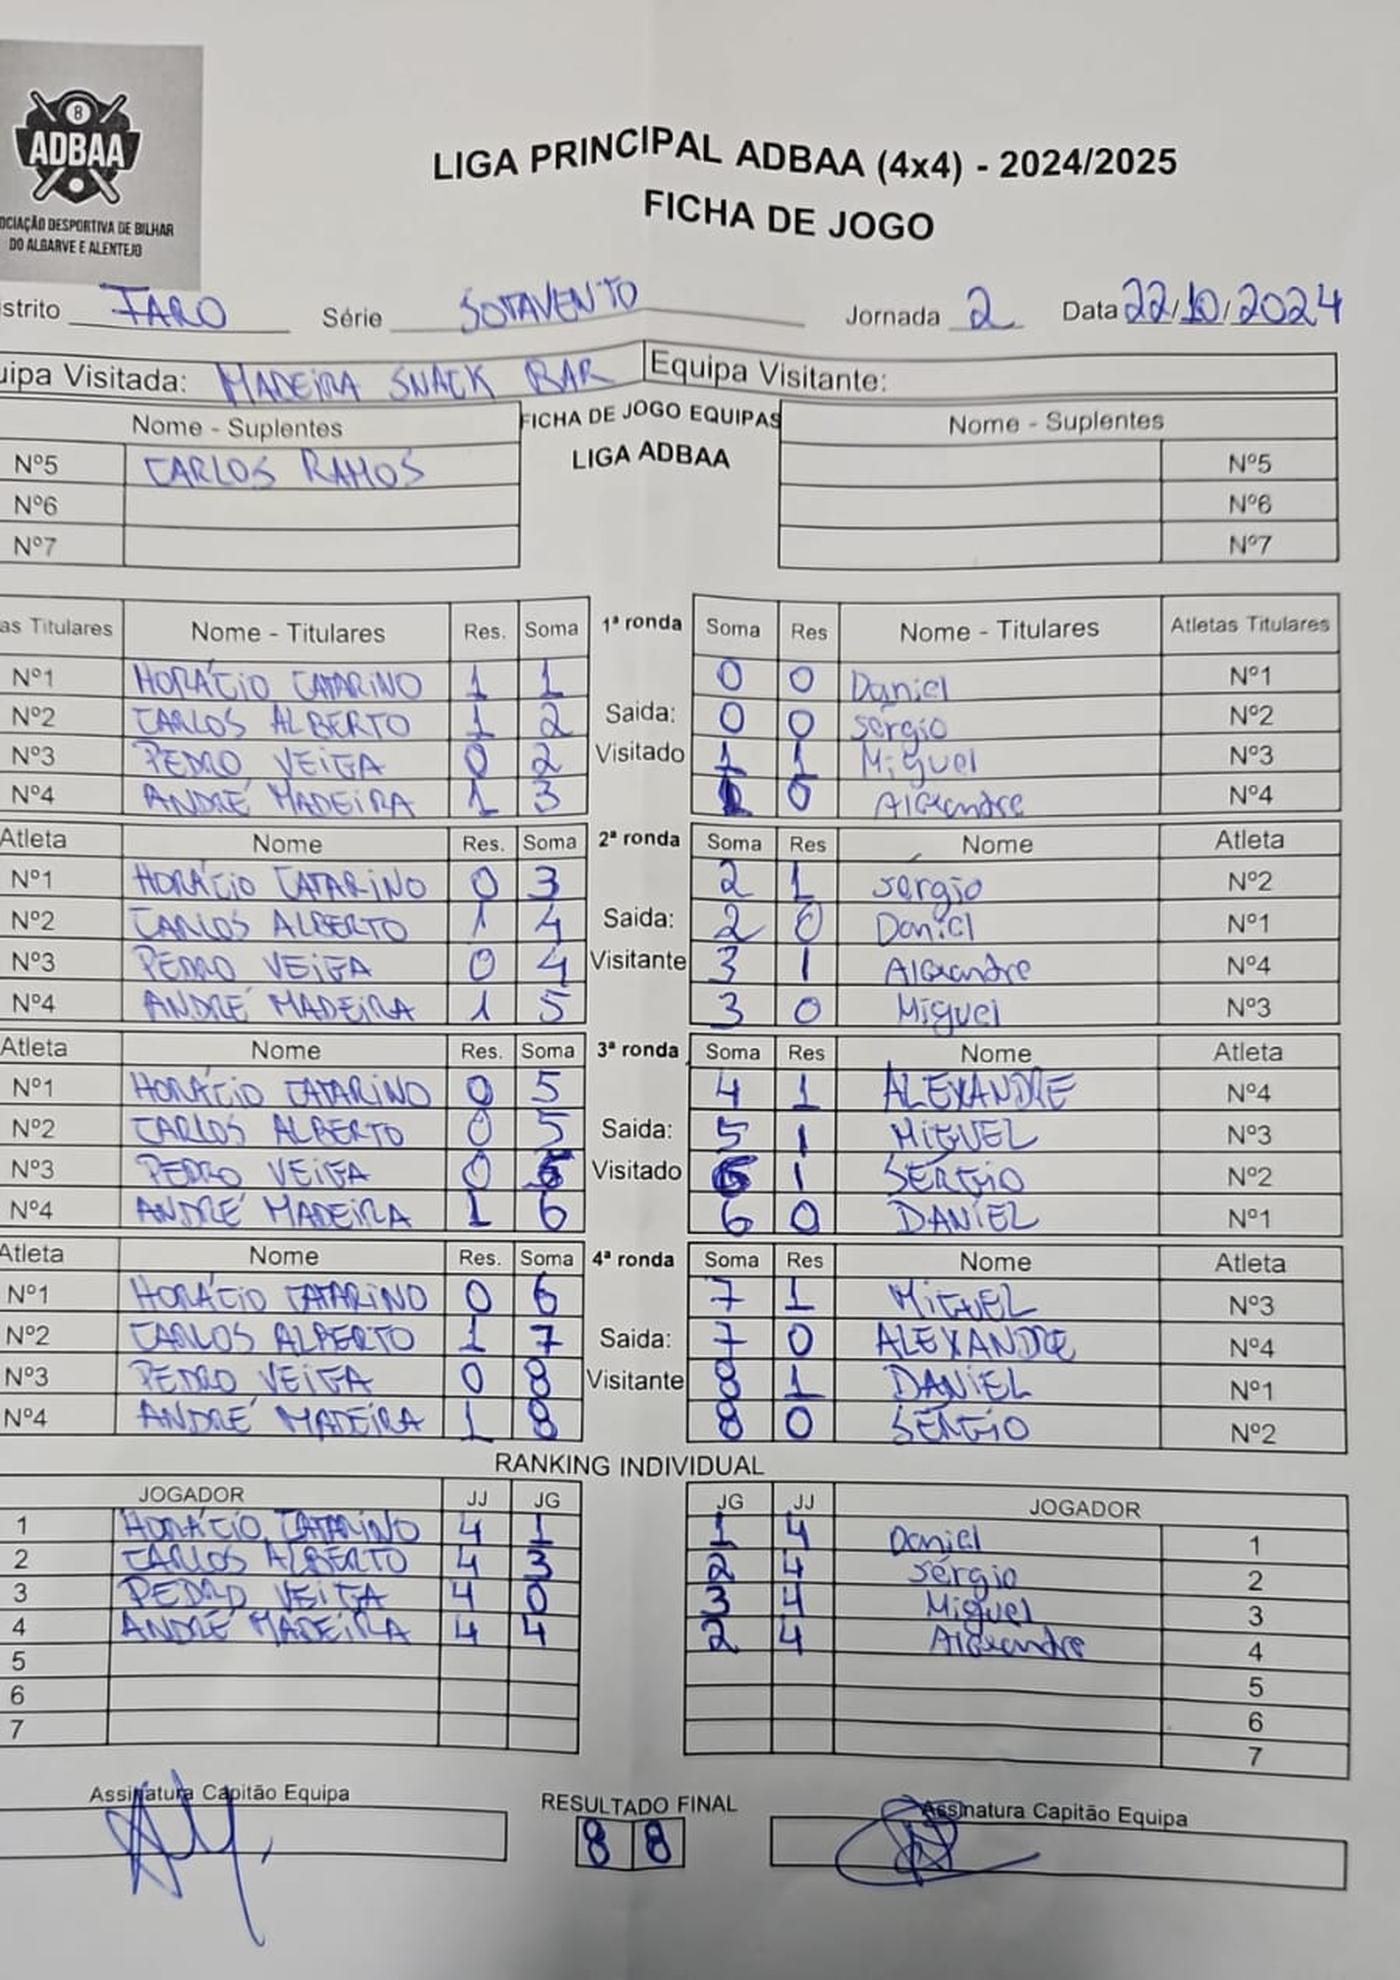 8
ADBAA
OCIAÇÃO DESPORTIVA DE BILHAR
DO ALGARVE E ALENTEJO
LIGA PRINCIPAL ADBAA (4x4) - 2024/2025
FICHA DE JOGO
istrito FARO Série SOTAVENTO Jornada 2 Data 22/10/2024
uipa Visitada: MADEIRA SNACK BAR Equipa Visitante:
Nome - Suplentes FICHA DE JOGO EQUIPAS Nome - Suplentes
LIGA ADBAA
Nº5 CARLOS RAMOS Nº5
Nº6 Nº6
Nº7 Nº7
as Titulares Nome - Titulares Res. Soma 1ª ronda Soma Res Nome - Titulares Atletas Titulares
Nº1 HORÁCIO CATARINO 1 1 0 0 Daniel Nº1
Nº2 CARLOS ALBERTO 1 2 Saida: 0 0 sérgio Nº2
Nº3 PEDRO VEIGA 0 2 Visitado 1 1 Miguel Nº3
Nº4 ANDRÉ MADEIRA 1 3 1 0 Alexandre Nº4
Atleta Nome Res. Soma 2ª ronda Soma Res Nome Atleta
Nº1 HORÁCIO CATARINO 0 3 2 1 sérgio Nº2
Nº2 CARLOS ALBERTO 1 4 Saida: 2 0 Daniel Nº1
Nº3 PEDRO VEIGA 0 4 Visitante 3 1 Alexandre Nº4
Nº4 ANDRÉ MADEIRA 1 5 3 0 Miguel Nº3
Atleta Nome Res. Soma 3ª ronda Soma Res Nome Atleta
Nº1 HORÁCIO CATARINO 0 5 4 1 ALEXANDRE Nº4
Nº2 CARLOS ALBERTO 0 5 Saida: 5 1 MIGUEL Nº3
Nº3 PEDRO VEIGA 0 5 Visitado 6 1 SÉRGIO Nº2
Nº4 ANDRÉ MADEIRA 1 6 6 0 DANIEL Nº1
Atleta Nome Res. Soma 4ª ronda Soma Res Nome Atleta
Nº1 HORÁCIO CATARINO 0 6 7 1 MIGUEL Nº3
Nº2 CARLOS ALBERTO 1 7 Saida: 7 0 ALEXANDRE Nº4
Nº3 PEDRO VEIGA 0 8 Visitante 8 1 DANIEL Nº1
Nº4 ANDRÉ MADEIRA 1 8 8 0 SÉRGIO Nº2
RANKING INDIVIDUAL
JOGADOR JJ JG JG JJ JOGADOR
1 HORÁCIO CATARINO 4 1 1 4 Daniel 1
2 CARLOS ALBERTO 4 3 2 4 sérgio 2
3 PEDRO VEIGA 4 0 3 4 Miguel 3
4 ANDRÉ MADEIRA 4 4 2 4 Alexandre 4
5 5
6 6
7 7
Assinatura Capitão Equipa RESULTADO FINAL Assinatura Capitão Equipa
8 8